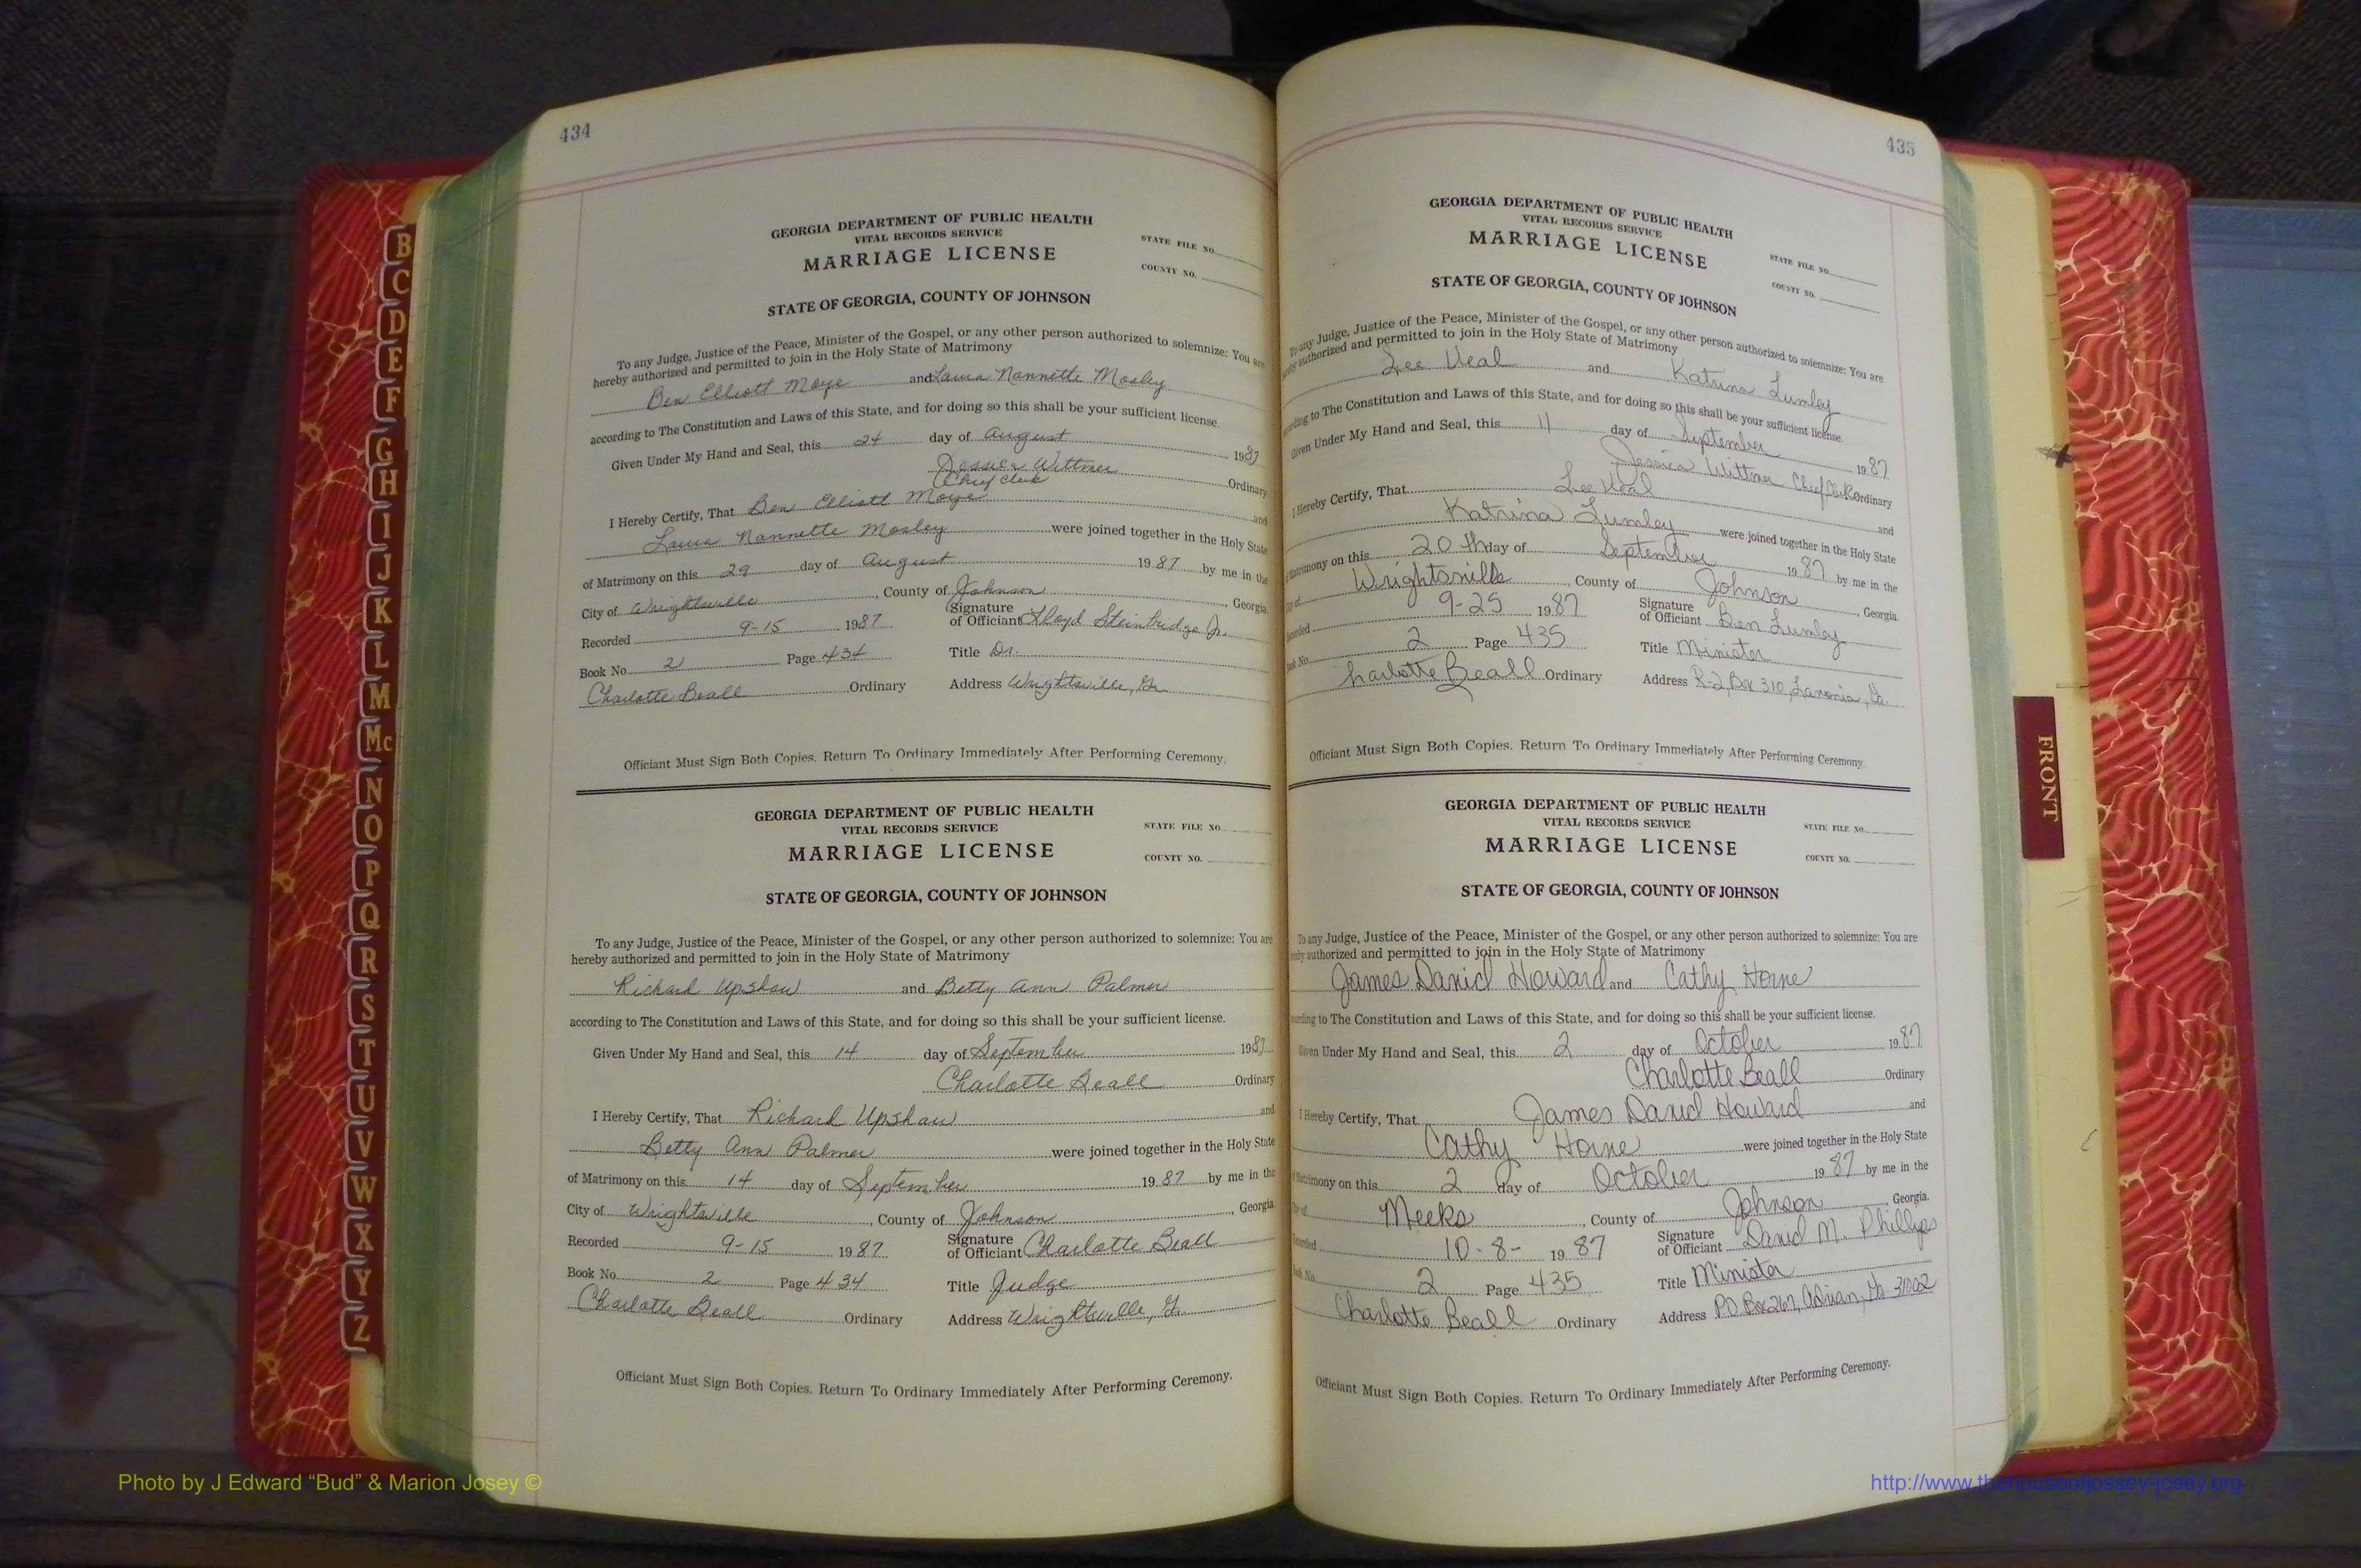 434
GEORGIA DEPARTMENT OF PUBLIC HEALTH
VITAL RECORDS SERVICE
MARRIAGE LICENSE
STATE FILE NO.
COUNTY NO.
STATE OF GEORGIA, COUNTY OF JOHNSON
To any Judge, Justice of the Peace, Minister of the Gospel, or any other person authorized to solemnize: You are
hereby authorized and permitted to join in the Holy State of Matrimony
Ben Elliott Moye and Laura Nannette Mosley
according to The Constitution and Laws of this State, and for doing so this shall be your sufficient license.
Given Under My Hand and Seal, this 24 day of August 1987
Jessica Wittmer
Chief Clerk Ordinary
I Hereby Certify, That Ben Elliott Moye and
Laura Nannette Mosley were joined together in the Holy State
of Matrimony on this 29 day of August 1987 by me in the
City of Wrightsville, County of Johnson, Georgia
Recorded 9-15 1987 Signature of Officiant Lloyd Steinbridge Jr.
Book No. 2 Page 434 Title Dr.
Charlotte Beall Ordinary Address Wrightsville, Ga.
Officiant Must Sign Both Copies. Return To Ordinary Immediately After Performing Ceremony.
GEORGIA DEPARTMENT OF PUBLIC HEALTH
VITAL RECORDS SERVICE
MARRIAGE LICENSE
STATE FILE NO.
COUNTY NO.
STATE OF GEORGIA, COUNTY OF JOHNSON
To any Judge, Justice of the Peace, Minister of the Gospel, or any other person authorized to solemnize: You are
hereby authorized and permitted to join in the Holy State of Matrimony
Richard Upshaw and Betty Ann Palmer
according to The Constitution and Laws of this State, and for doing so this shall be your sufficient license.
Given Under My Hand and Seal, this 14 day of September 1987
Charlotte Beall Ordinary
I Hereby Certify, That Richard Upshaw and
Betty Ann Palmer were joined together in the Holy State
of Matrimony on this 14 day of September 1987 by me in the
City of Wrightsville, County of Johnson, Georgia
Recorded 9-15 1987 Signature of Officiant Charlotte Beall
Book No. 2 Page 434 Title Judge
Charlotte Beall Ordinary Address Wrightsville, Ga.
Officiant Must Sign Both Copies. Return To Ordinary Immediately After Performing Ceremony.
435
GEORGIA DEPARTMENT OF PUBLIC HEALTH
VITAL RECORDS SERVICE
MARRIAGE LICENSE
STATE FILE NO.
COUNTY NO.
STATE OF GEORGIA, COUNTY OF JOHNSON
To any Judge, Justice of the Peace, Minister of the Gospel, or any other person authorized to solemnize: You are
hereby authorized and permitted to join in the Holy State of Matrimony
Lee Veal and Katrina Lumley
according to The Constitution and Laws of this State, and for doing so this shall be your sufficient license.
Given Under My Hand and Seal, this 11 day of September 1987
Jessica Wittmer Chief Clerk Ordinary
I Hereby Certify, That Lee Veal and
Katrina Lumley were joined together in the Holy State
Matrimony on this 20th day of September 1987 by me in the
City of Wrightsville, County of Johnson, Georgia
Recorded 9-25 1987 Signature of Officiant Ben Lumley
Book No. 2 Page 435 Title Minister
harlotte Beall Ordinary Address R-2, Box 310, Lavonia, Ga.
Officiant Must Sign Both Copies. Return To Ordinary Immediately After Performing Ceremony.
GEORGIA DEPARTMENT OF PUBLIC HEALTH
VITAL RECORDS SERVICE
MARRIAGE LICENSE
STATE FILE NO.
COUNTY NO.
STATE OF GEORGIA, COUNTY OF JOHNSON
To any Judge, Justice of the Peace, Minister of the Gospel, or any other person authorized to solemnize: You are
hereby authorized and permitted to join in the Holy State of Matrimony
James David Howard and Cathy Horne
according to The Constitution and Laws of this State, and for doing so this shall be your sufficient license.
Given Under My Hand and Seal, this 2 day of October 1987
Charlotte Beall Ordinary
I Hereby Certify, That James David Howard and
Cathy Horne were joined together in the Holy State
Matrimony on this 2 day of October 1987 by me in the
City of Meeks, County of Johnson, Georgia.
Recorded 10-8- 1987 Signature of Officiant David M. Phillips
Book No. 2 Page 435 Title Minister
Charlotte Beall Ordinary Address P.O. Box 267, Adrian, Ga 31002
Officiant Must Sign Both Copies. Return To Ordinary Immediately After Performing Ceremony.
B
C
D
E
F
G
H
I
J
K
L
M
Mc
N
O
P
Q
R
S
T
U
V
W
X
Y
Z
FRONT
Photo by J Edward “Bud” & Marion Josey ©
http://www.thehouseofjossey-josey.org